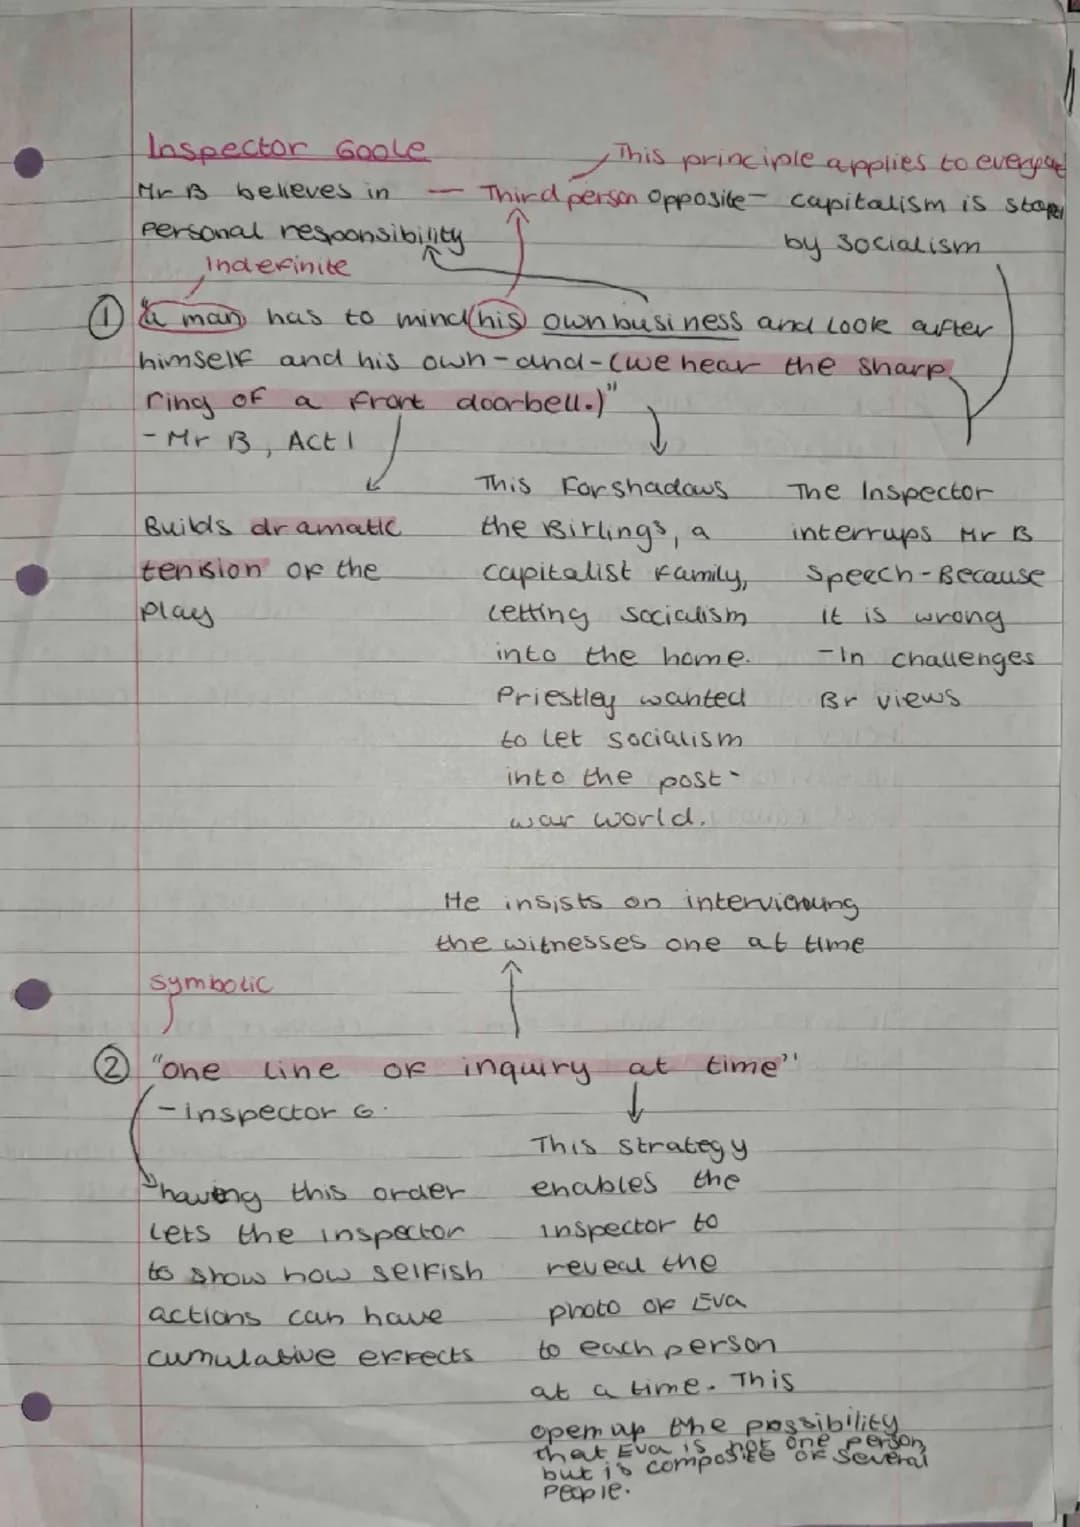 Inspector Goole
This principle applies to everyone
Mr B believes in — Third person opposite — capitalism is stop
personal responsibility
by socialism
Indefinite
① "a man has to mind his own business and look after
himself and his own-and-(we hear the sharp
ring of a front doorbell.)"
- Mr B, Act 1
Builds dramatic
tension of the
play
This Forshadows
the Birlings, a
capitalist family,
letting socialism
into the home.
Priestley wanted
to let socialism
into the post-
war world.
The Inspector
interrups Mr B
Speech-Because
it is wrong
-In challenges
Br views
He insists on interviewing
the witnesses one at time
Symbolic
② "one line of inquiry at time"
- inspector G.
having this order
lets the inspector
to show how selfish
actions can have
cumulative effects
This strategy
enables the
inspector to
reveal the
photo of Eva
to each person
at a time. This
open up the possibility
that Eva is not one person,
but is composite of several
people.